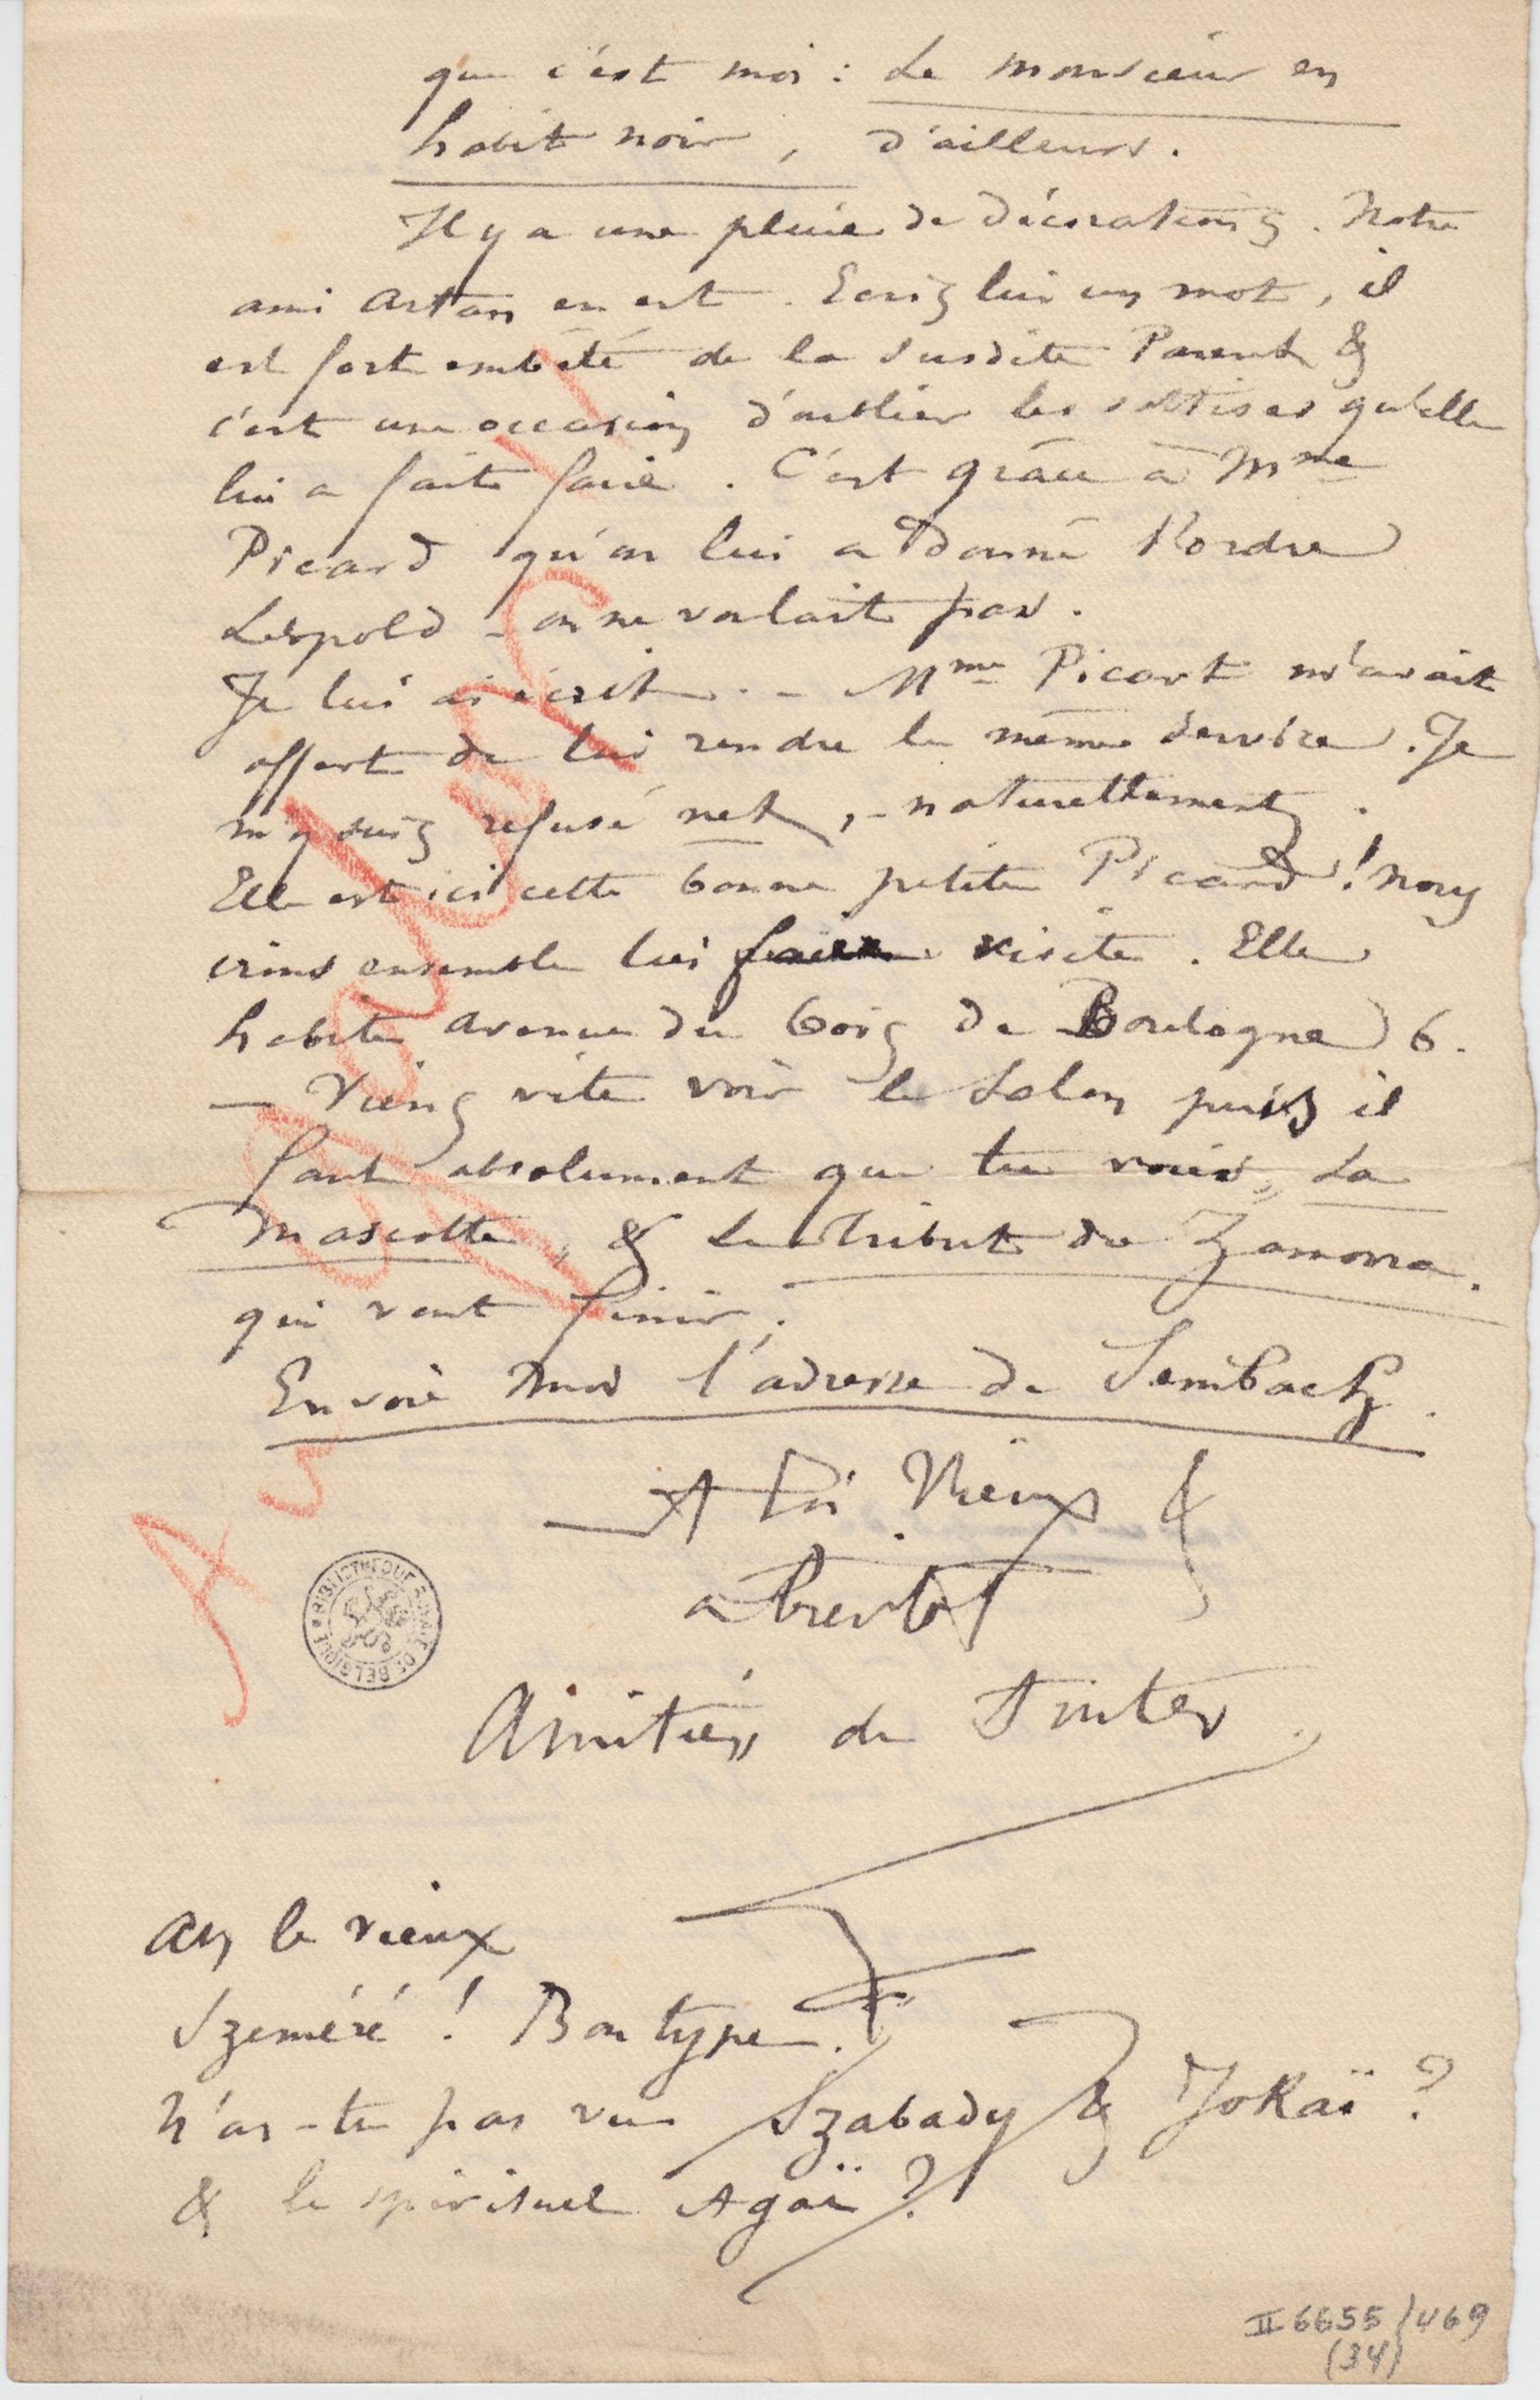 que c'est moi : Le monsieur en
habit noir, d'ailleurs.
Il y a une pluie de décorations. Notre
ami Artan en est. Ecris lui un mot, il
est fort embêté de la susdite Parent &
c'est une occasion d'oublier les sottises qu'elle
lui a fait faire. C'est grâce à Mme
Picard qu'on lui a donné l'ordre
Léopold - on ne voulait pas.
Je lui ai écrit. - Mme Picart m'avait
offert de lui rendre le même service. Je
m'y suis refusé net, - naturellement.
Elle est ici cette bonne petite Picard ! nous
irons ensemble lui faire visite. Elle
habite avenue du bois de Boulogne 6.
— Viens vite voir le Salon puis il
faut absolument que tu voies, La
Mascotte, & Le Tribut de Zamora.
qui vont finir.
Envoie moi l'adresse de Sembach.
A toi Vieux &
a bientôt
Amitiés de toutes
F
Ah le vieux
Szeméré ! Bon type.
N'as-tu pas vu Szabady & Jokaï ?
& le spirituel Agaï ?
BIBLIOTHEQUE ROYALE DE BELGIQUE
II 6655/469
(34)